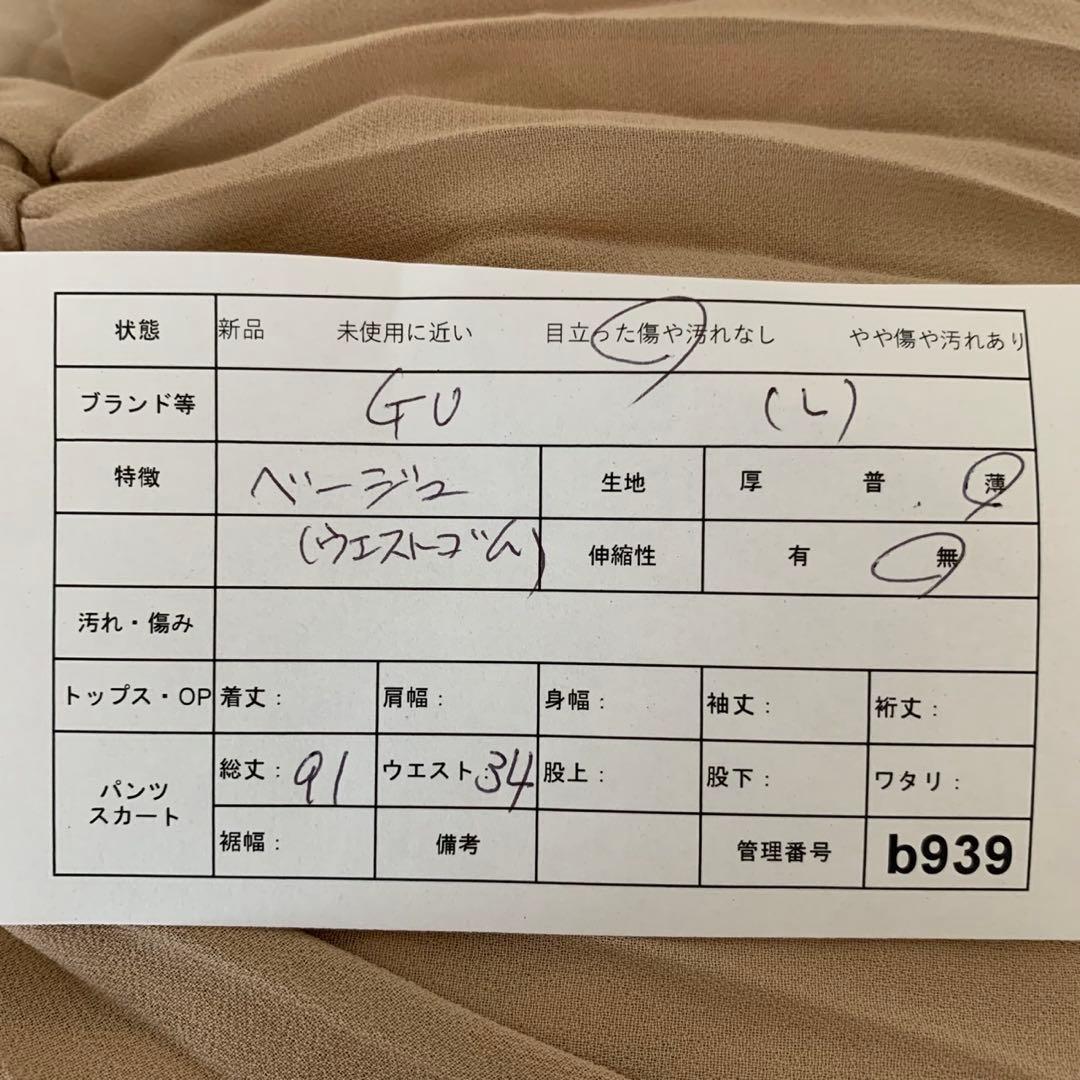 状態 新品 未使用に近い 目立った傷や汚れなし やや傷や汚れあり
ブランド等 GU (L)
特徴 ベージュ 生地 厚 普 薄
(ウエストゴム) 伸縮性 有 無
汚れ・傷み
トップス・OP 着丈: 肩幅: 身幅: 袖丈: 裄丈:
パンツ スカート 総丈: 91 ウエスト: 34 股上: 股下: ワタリ:
裾幅: 備考 管理番号 b939